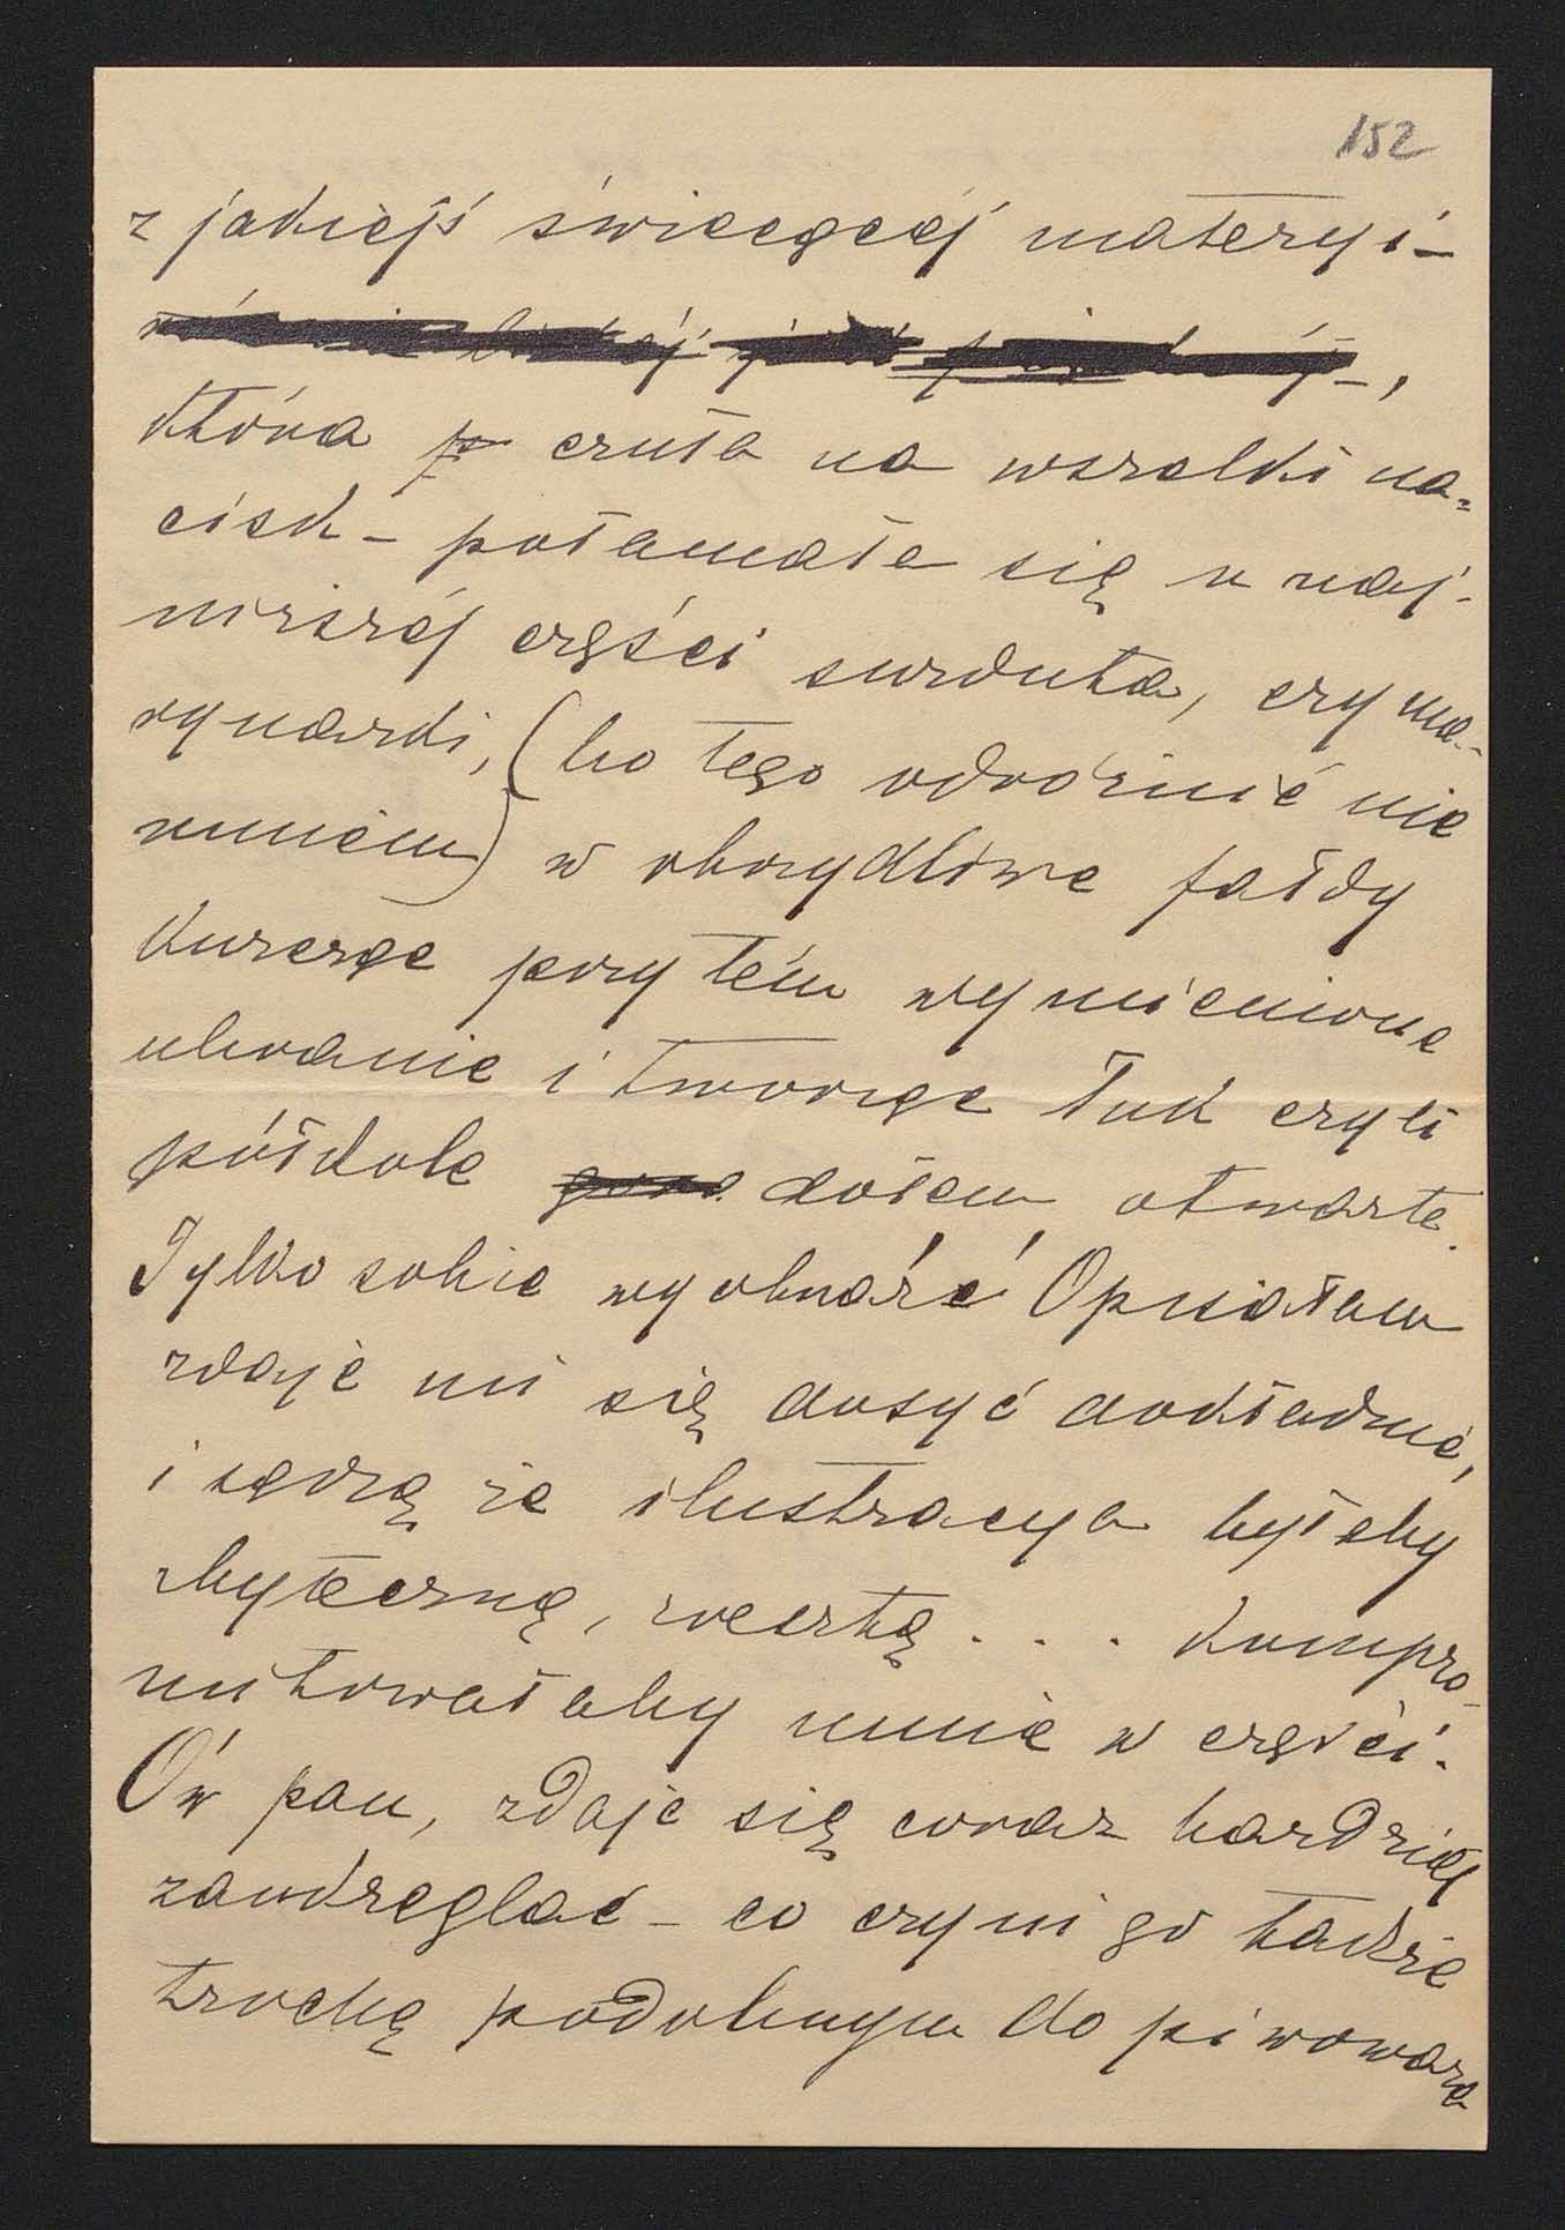 152
z jakiejś świecącej materyi –
która p czuła na wszelki na=
cisk – połamała się w naj-
niższej części surduta, czy ma-
rynarki, (bo tego odróżnić nie
umiem) w obrzydliwe fałdy
kurcząc przytém wymienione
ubranie i tworząc łuk czyli
półkole dołem otwarte.
Tylko sobie wyobraźć! Opisałam
zdaje mi się dosyć dokładnie,
i sądzę że ilustracya byłaby
zbyteczną, zresztą . . . kompro-
mitowałaby mnie w części.
Ów pan, zdaje się coraz bardziej
zaokrąglać – co czyni go także
trochę podobnym do piwowara